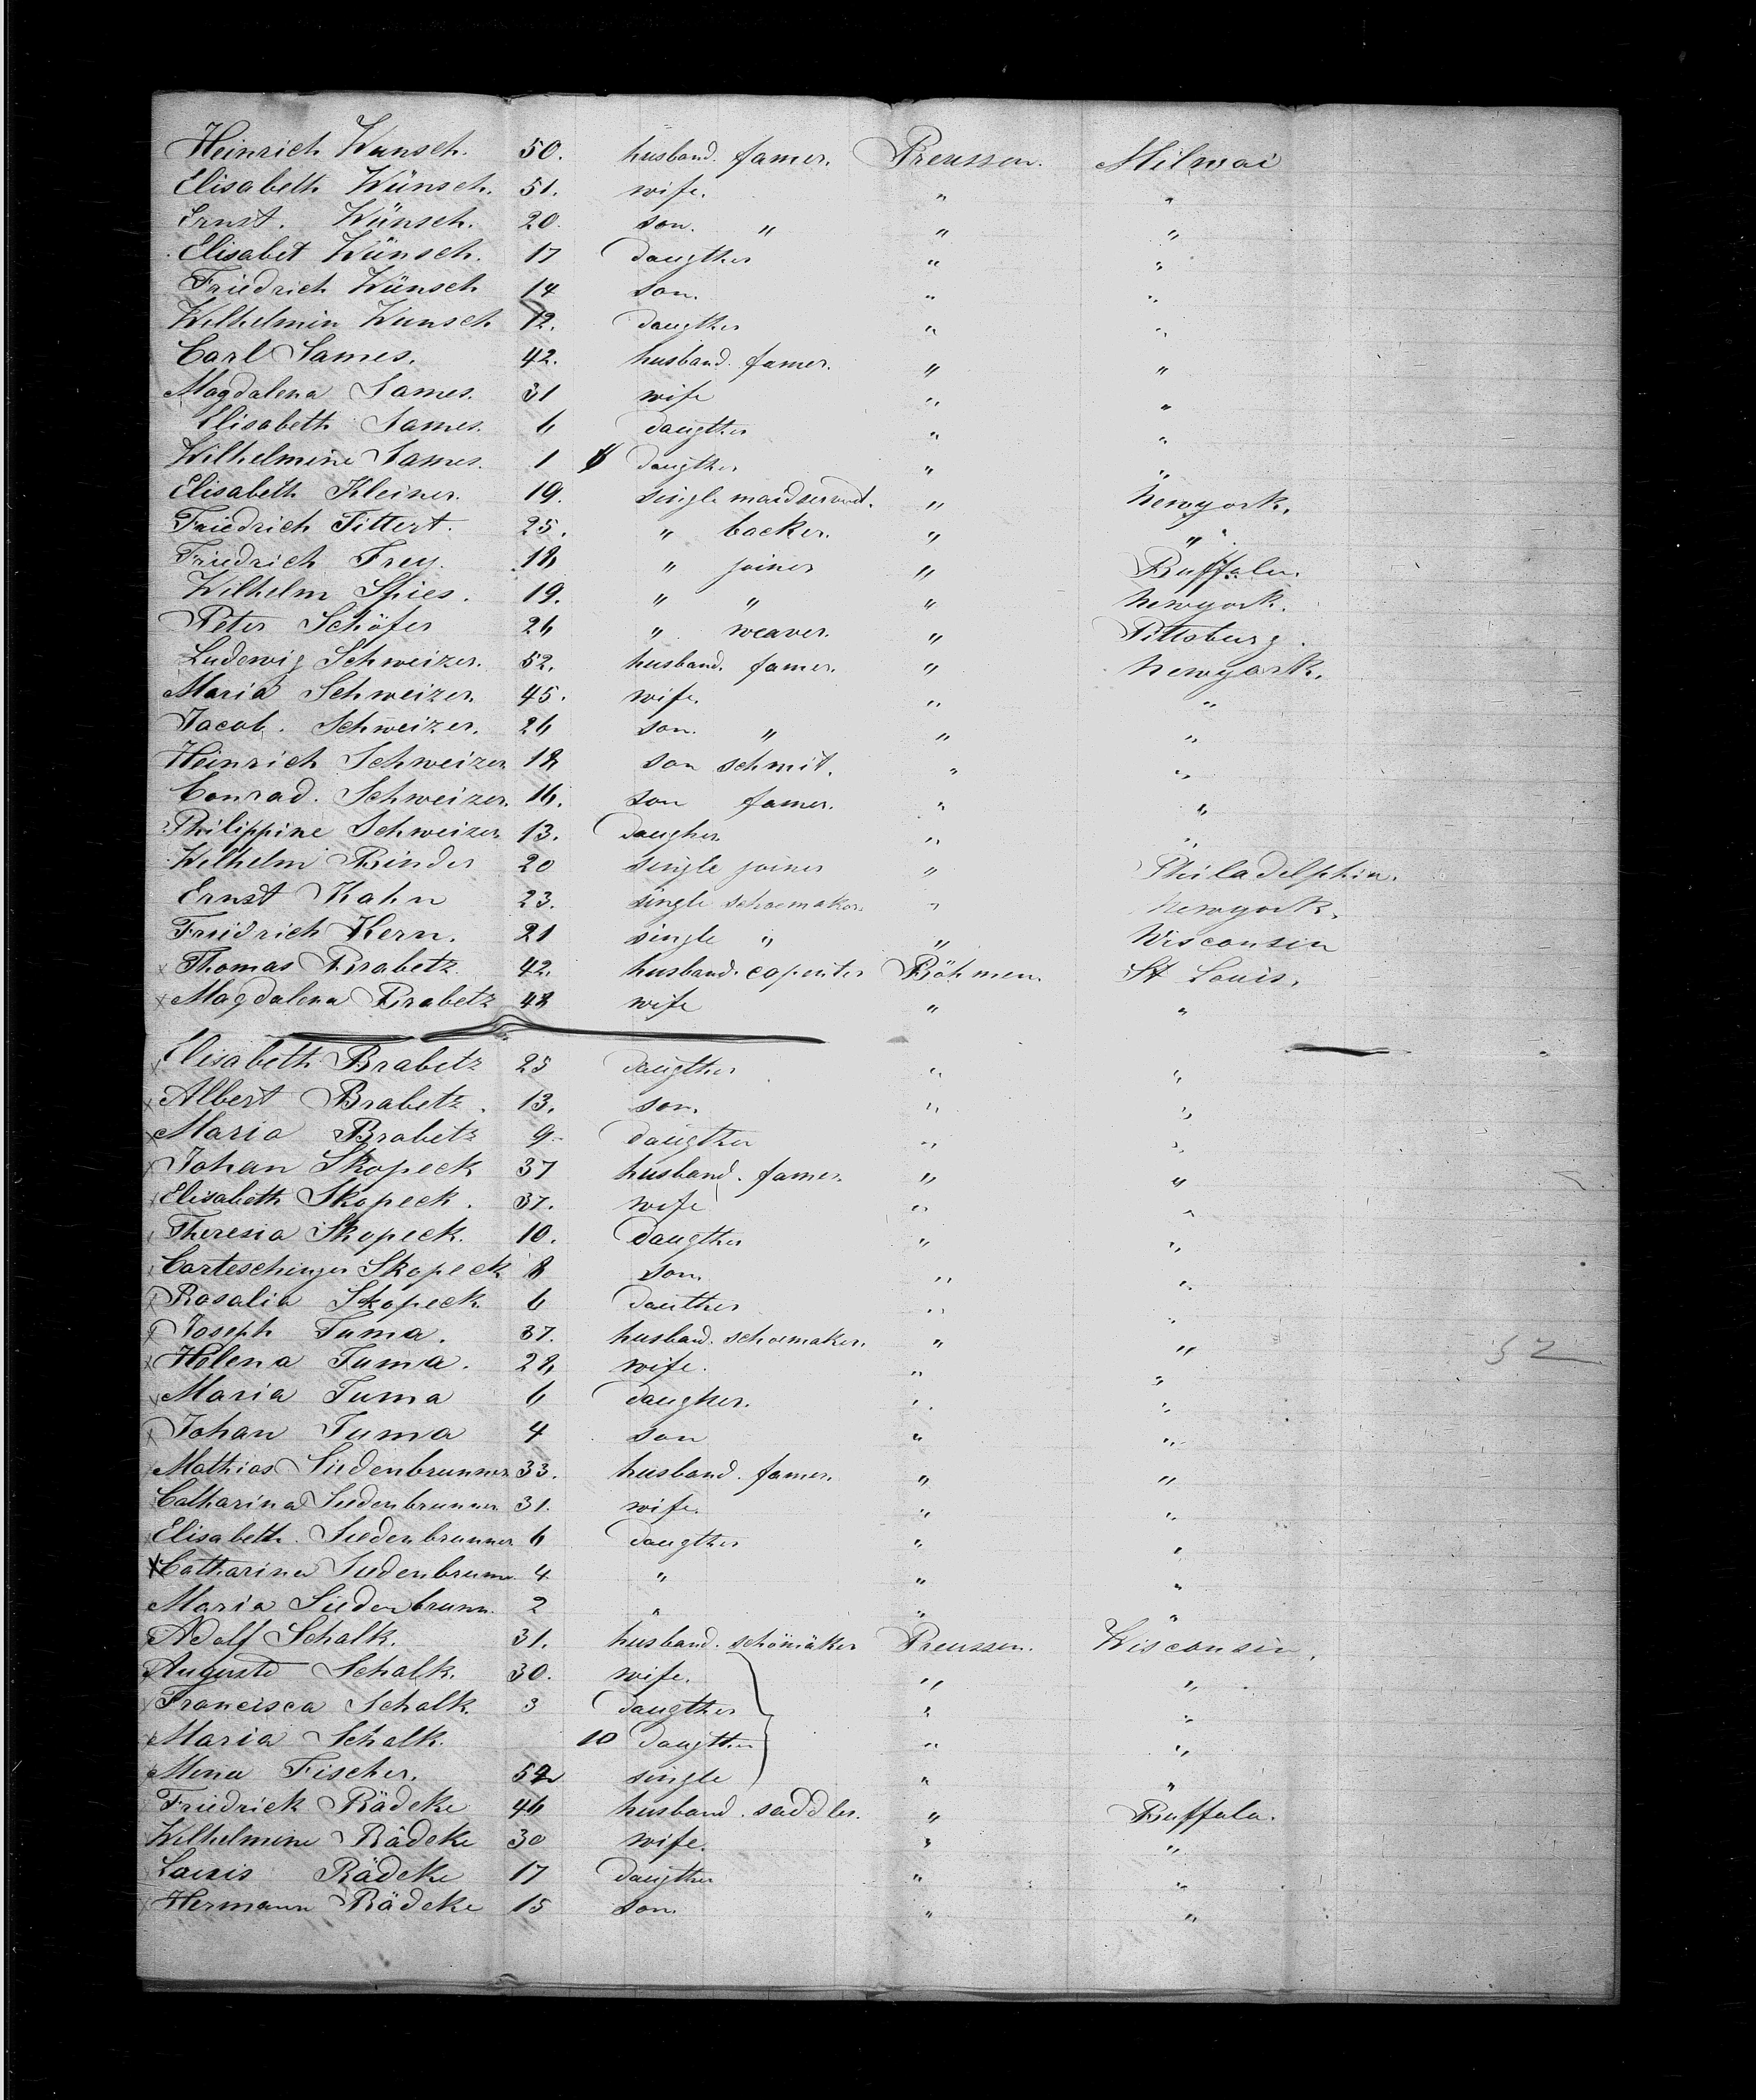 Heinrich Wunsch. 50. husband. famer. Preussen. Milwai
Elisabeth Wünsch. 51. wife. " "
Ernst. Wünsch. 20. son. " " "
Elisabet Wünsch. 17 daugther " "
Friedrich Wünsch 14 son. " "
Wilhelmin Wunsch 12. daugther " "
Carl Sames. 42. husband. famer. " "
Magdalena Sames. 31 wife " "
Elisabeth Sames. 6 daugther " "
Wilhelmine Sames. 1 daugther " "
Elisabeth Kleiner. 19. single maidservent. " Newyork.
Friedrich Tittert. 25. " backer. " "
Friedrich Frey. 18 " joiner " Buffalo.
Wilhelm Spies. 19. " " " Newyork.
Peter Schöfer 26 " weaver. " Pittsburg.
Ludewig Schweizer. 52. husband. famer. " Newyork.
Maria Schweizer 45. wife. " "
Jacob. Schweizer. 26 son. " " "
Heinrich Schweizer 18 son schmit. " "
Conrad. Schweizer. 16. son famer. " "
Philippine Schweizer 13. daugher. " "
Wilhelm Binder 20 single joiner " Philadelphia.
Ernst Kahn 23. single schoemaker. " Newyork.
Friedrich Kern. 21 single " " Wisconsin
Thomas Brabetz 42. husband. capenter Böhmen. St Louis.
Magdalena Brabetz 48 wife " "
Elisabeth Brabetz 25 daugther " "
Albert Brabetz. 13. son. " "
Maria Brabetz 9 daugther " "
Johan Skopeck 37 husband. famer. " "
Elisabeth Skopeck. 37. wife " "
Theresia Skopeck. 10. daugther " "
Skopeck 8 son. " "
Rosalia Skopeck 6 dauther " "
Joseph Tuma. 37. husband. schoemaker. " "
Helena Tuma. 28 wife. " "
Maria Tuma 6 daugher. " "
Johan Tuma 4 son " "
Mathias Siedenbrunner 33. husband. famer. " "
Catharina Siedenbrunner 31. wife. " "
Elisabeth. Siedenbrunner 6 daugther " "
Catharina Siedenbrunn 4 " " "
Maria Siedenbrunn. 2 " " "
Adolf Schalk. 31. husband. schömäker Preussen. Wisconsin.
Auguste Schalk. 30. wife. " "
Francisca Schalk. 3 daugther " "
Maria Schalk. 10 daugther " "
Mena Fischer. single " "
Friedrick Rädeke 46 husband. saddler. " Buffalo.
Wilhelmine Rädeke 30 wife. " "
Rädeke 17 daugther " "
Hermann Rädeke 15 son. " "
52